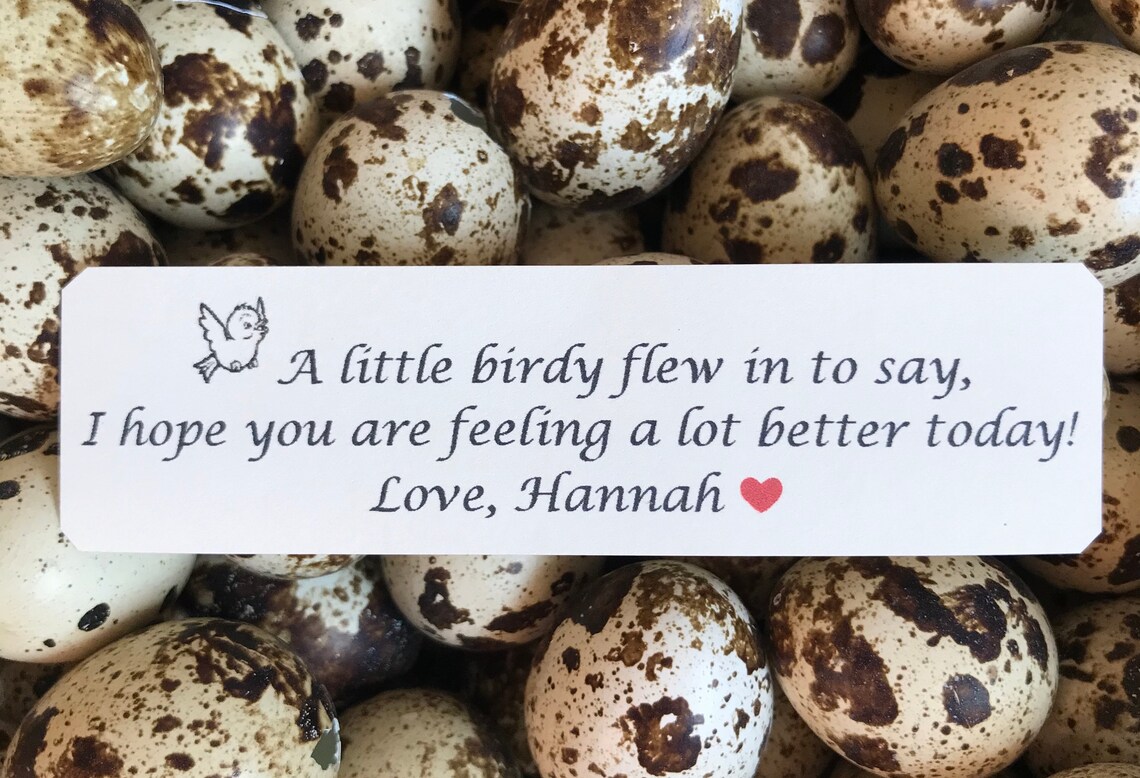 A little birdy flew in to say,
I hope you are feeling a lot better today!
Love, Hannah ❤